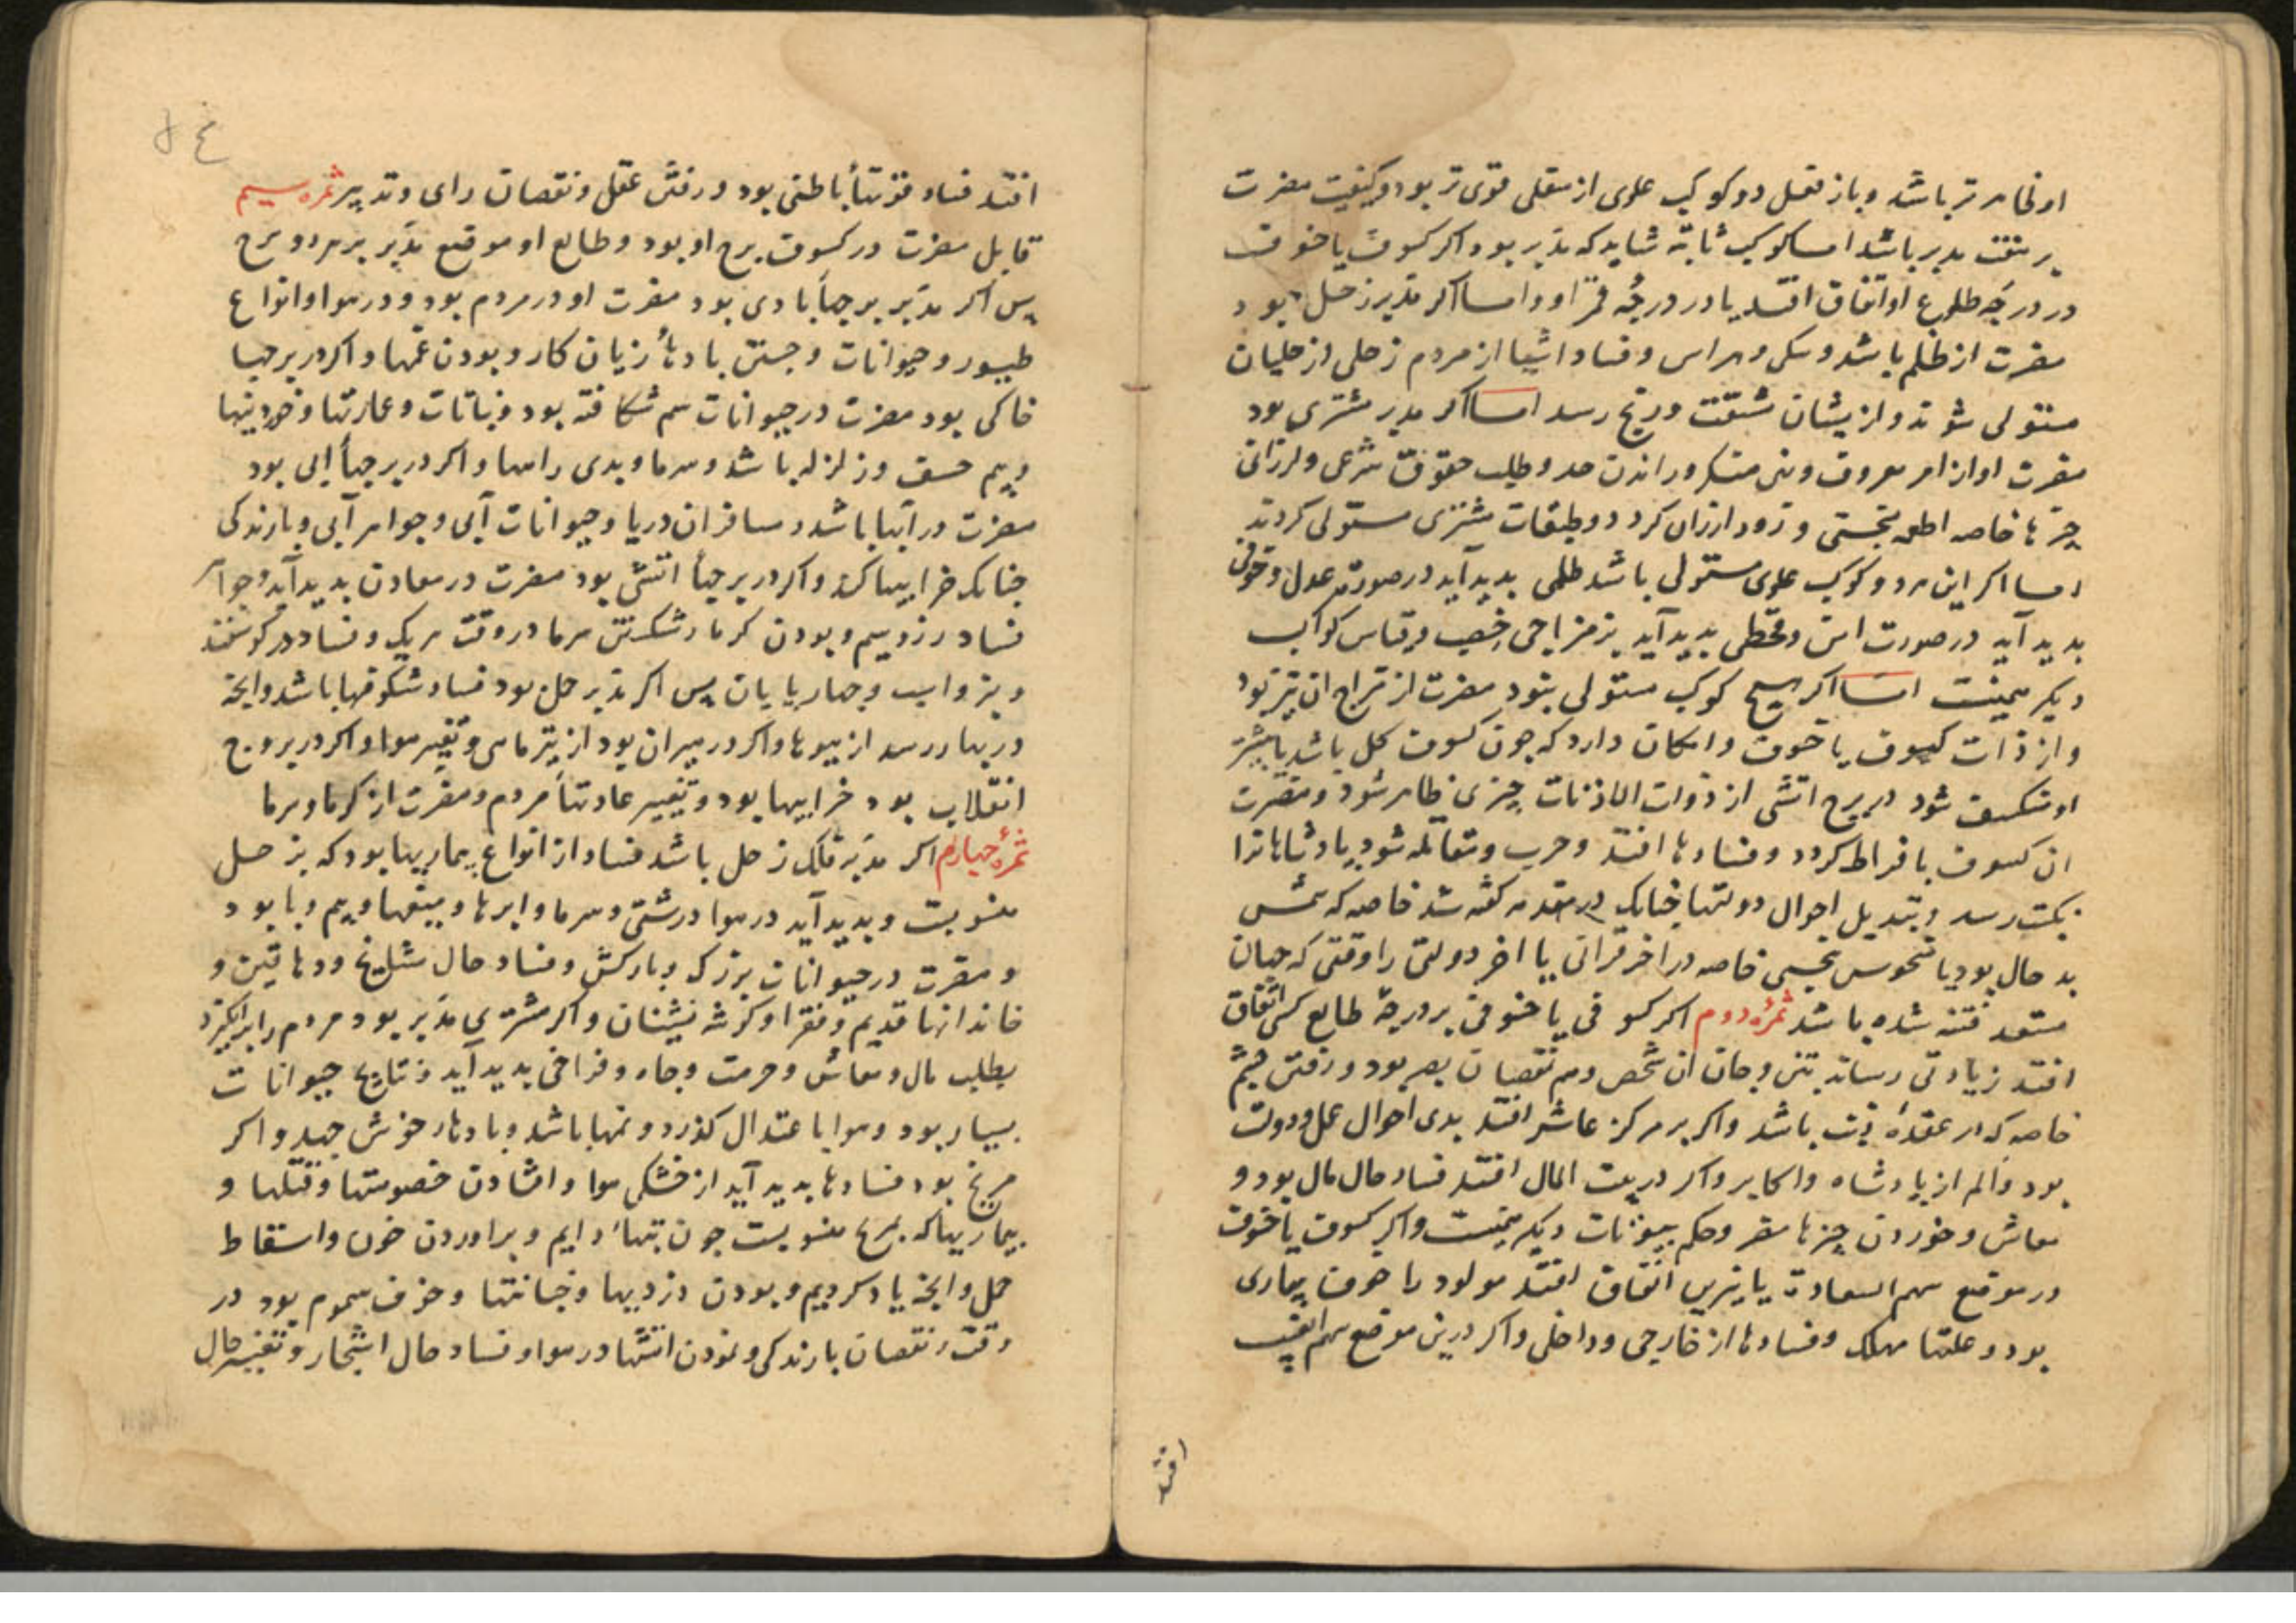 او ظاهر تر باشد و باز فعل دو کوکب علوی از سفلی قوی تر بود و کیفیت مضرت
بر منفت مدبر باشد اما کوکب ثابته شاید که مدبر بود اکر کسوف یا خسوف
در درجه طلوع او اتفاق افتد یا در درجهٔ ممر او و اما اکر مدبر زحل بود
مضرت از ظلم باشد و سکی و هراس و فساد اشیا از مردم زحلی از حلیان
مستولی شوند و از یشان مشقت و رنج رسد اما اکر مدبر مشتری بود
مضرت او از امر معروف و نهی منکر و راندن حد و طلب حقوق شرعی و ارزانی
چیزها خاصه اطعمه بختی و زود ارزان کردد و طبقات مشتری مستولی کردند
اما اکر این هر دو کوکب علوی مستولی باشد ظلمی بدید آید در صورت عدل و خوفی
بدید آید در صورت امن و قحطی بدید آید بز مزاجی خصب و قیاس کواکب
دیکر همینست اما اکر هیچ کوکب مستولی نبود مضرت از مزاج ان بتر بود
و از ذات کسوف یا خسوف و امکان دارد که چون کسوف کل باشد یا بیشتر
او منکسف شود در برج اتشی از ذوات الاذناب چیزی ظاهر شود و مضرت
ان کسوف بافراط کردد و فسادها افتد و حرب و مقاتله شود پادشاهانرا
نکبت رسد و تبدیل احوال دولتها چنانک در مقدمه کفته شد خاصه که شمس
بد حال بود یا منحوس بنحسی خاصه در اخر قرانی یا اخر دولتی را وقتی که جهان
مستعد فتنه شده باشد ثمرهٔ دوم اکر کسوفی یا خسوفی بر درجهٔ طالع کسی اتفاق
افتد زیادتی رساند بتن و جان ان شخص و هم نقصان بصر بود و رفتن چشم
خاصه که در عقدهٔ ذنب باشد و اکر بر مرکز عاشر افتد بدی احوال عمل و دولت
بود و الم از پادشاه و اکابر و اکر در بیت المال افتد فساد حال مال بود و
معاش و خوردن چیزها مضر و حکم بیوتات دیکر همینست و اکر کسوف یا خسوف
در موضع سهم السعادت یا نیرین اتفاق افتد مولود را خوف بیماری
بود و علتها مهلک و فسادها از خارجی و داخلی و اکر درین موضع سهم الغیب
افتد
افتد فساد قوتهأ باطنی بود و رفتن عقل و نقصان رای و تدبیر ثمره سیم
قابل مضرت در کسوف برج او بود و طالع او موضع مدبر بر هر دو برج
پس اکر مدبر برجهأ بادی بود مضرت او در مردم بود و در هوا و انواع
طیور و حیوانات و جستن بادهأ زیان کار و بودن غمها و اکر در برجها
خاکی بود مضرت در حیوانات سم شکافته بود و نباتات و عمارتها و خوردنیها
و بیم خسف و زلزله باشد و سرما و بدی راهها و اکر در برجهأ ابی بود
مضرت در آبها باشد و مسافران دریا و حیوانات آبی و جواهر آبی و بارندکی
چنانک خرابیها کند و اکر در برجهأ اتشی بود مضرت در معادن بدید آید و جواهر
فساد زر و سیم و بودن کرما و شکستن سرما در وقت هر یک و فساد در کوسفند
و بز و اسب و چهارپایان پس اکر مدبر حمل بود فساد شکوفها باشد و انچه
در بهار رسد از میوها و اکر در میزان بود از تیرماهی و تغییر هوا و اکر در بروج
انقلاب بود خرابیها بود و تغییر عادتهأ مردم و مضرت از کرما و سرما
ثمرهٔ چهارم اکر مدبر فلک زحل باشد فساد از انواع بیماریها بود که بزحل
منسوبست و بدید آید در هوا درشتی و سرما و ابرها و میغها و بیم وبا بود
و مضرت در حیوانات بزرک و بارکش و فساد حال مشایخ و دهاقین و
خاندانها قدیم و فقرا و کوشه نشینان و اکر مشتری مدبر بود مردم را برانکیزد
بطلب مال و معاش و حرمت و جاه و فراخی بدید آید و نتایج حیوانات
بسیار بود و هوا باعتدال کذرد و نمها باشد و بادهار خوش جهد و اکر
مریخ بود فسادها بدید آید از خشکی هوا و افتادن خصومتها و قتلها و
بیماریها که بمریخ منسوبست چون تبهاء دایم و براوردن خون و اسقاط
حمل و انچه یاد کردیم و بودن دزدیها و خیانتها و خوف سموم بود در
وقت و نقصان بارندکی و نمودن اتشها در هوا و فساد حال اشجار و تغییر حال